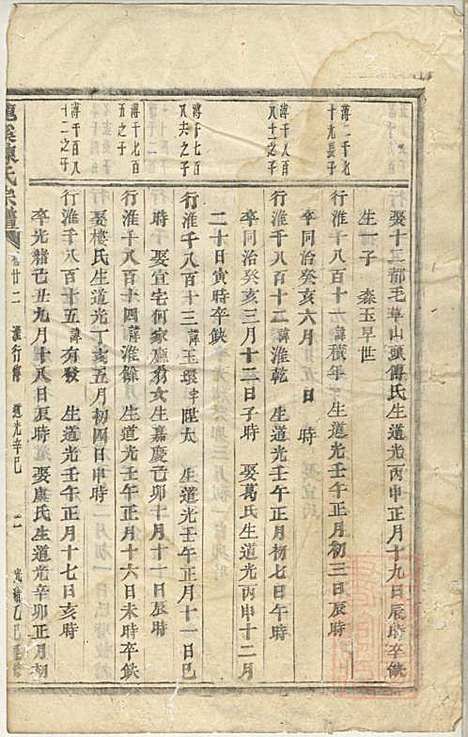 行 娶十二都毛草山頭傅氏生道光丙申正月十九日辰時卒缺
生一子 森玉早世
溥二千七十九長子
行淮千八百十一諱積年 生道光壬午正月初三日辰時
卒同治癸亥六月 日 時
溥千八百八十一之子
行淮千八百十二諱淮乾 生道光壬午正月初七日午時
卒同治癸亥三月十二日子時 娶葛氏生道光丙申十二月
二十日寅時卒缺
溥千七百八夫之子
行淮千八百十三諱玉環字陛太 生道光壬午正月十一日巳
時 娶宜宅何家廳豹女生嘉慶己卯十月十一日辰時
溥千七百五之子
行淮千八百十四諱淮餘 生道光壬午正月十六日未時卒缺
娶樓氏生道光丁亥五月初四日申時
溥千百八十二之子
行淮千八百十五諱有發 生道光壬午正月十七日亥時
卒光緒己丑九月十八日辰時 娶虞氏生道光辛卯正月朔
溪陳氏宗譜 卷廿二 淮行傳 道光辛巳 二 光緒乙巳重修